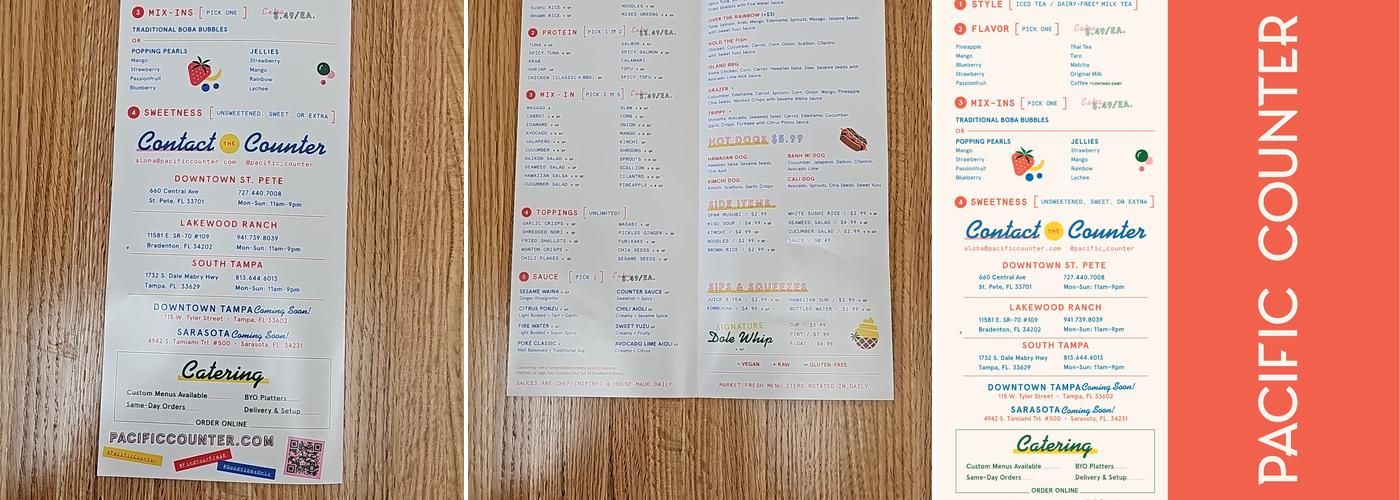 3 MIX-INS [PICK ONE] Extra $.49/EA.
TRADITIONAL BOBA BUBBLES
OR
POPPING PEARLS
Mango
Strawberry
Passionfruit
Blueberry
JELLIES
Strawberry
Mango
Rainbow
Lychee
4 SWEETNESS [UNSWEETENED, SWEET, OR EXTRA]
Contact THE Counter
aloha@pacificcounter.com @pacific_counter
DOWNTOWN ST. PETE
660 Central Ave 727.440.7008
St. Pete, FL 33701 Mon-Sun: 11am-9pm
LAKEWOOD RANCH
11581 E. SR-70 #109 941.739.8039
Bradenton, FL 34202 Mon-Sun: 11am-9pm
SOUTH TAMPA
1732 S. Dale Mabry Hwy 813.644.6013
Tampa, FL 33629 Mon-Sun: 11am-9pm
DOWNTOWN TAMPA Coming Soon!
115 W. Tyler Street • Tampa, FL 33602
SARASOTA Coming Soon!
4942 S. Tamiami Trl. #500 • Sarasota, FL 34231
Catering
Custom Menus Available BYO Platters
Same-Day Orders Delivery & Setup
ORDER ONLINE
PACIFICCOUNTER.COM
#PacificCounter
#FindYourFresh
#GoodVibesOnly
SUSHI RICE
BROWN RICE
NOODLES
MIXED GREENS
2 PROTEIN [PICK 1 or 2]
TUNA
SPICY TUNA
KRAB
SHRIMP
CHICKEN (CLASSIC or BBQ)
SALMON
SPICY SALMON
CALAMARI
TOFU
SPICY TOFU
3 MIX-IN [PICK 3 or 5] Extra $.49/EA.
MASAGO
CARROT
EDAMAME
AVOCADO
JALAPEÑO
CUCUMBER
DAIKON SALAD
SEAWEED SALAD
HAWAIIAN SALSA
CUCUMBER SALAD
SLAW
CORN
ONION
MANGO
KIMCHI
SHROOMS
SPROUTS
SCALLION
CILANTRO
PINEAPPLE
4 TOPPINGS [UNLIMITED!]
GARLIC CRISPS
SHREDDED NORI
FRIED SHALLOTS
WONTON CRISPS
CHILI FLAKES
WASABI
PICKLED GINGER
FURIKAKE
CHIA SEEDS
SESAME SEEDS
5 SAUCE [PICK 1] Extra $.49/EA.
SESAME WAINA
Ginger Vinaigrette
CITRUS PONZU
Light Bodied • Tart
FIRE WATER
Light Bodied • Super Spicy
POKÉ CLASSIC
Well Balanced • Traditional Soy
COUNTER SAUCE
Sweetish • Spicy
CHILI AIOLI
Creamy • Sesame Spice
SWEET YUZU
Creamy • Fruity
AVOCADO LIME AIOLI
Creamy • Citrus
SAUCES ARE CHEF-INSPIRED & HOUSE-MADE DAILY
OVER THE RAINBOW (+$3)
Tuna, Salmon, Krab, Mango, Edamame, Sprouts, Masago, Sesame Seeds
with Sweet Yuzu Sauce
HOLD THE FISH
Chicken, Cucumber, Carrot, Corn, Onion, Scallion, Cilantro
with Sweet Yuzu Sauce
ISLAND BBQ
Aloha Chicken, Corn, Carrot, Hawaiian Salsa, Slaw, Sesame Seeds with
Avocado Lime Aioli Sauce
GRAZER
Cucumber, Edamame, Carrot, Sprouts, Corn, Onion, Mango, Pineapple,
Chia Seeds, Wonton Crisps with Sesame Waina Sauce
TRIPPY
Shrooms, Avocado, Seaweed Salad, Carrot, Edamame, Cucumber,
Garlic Crisps, Furikake with Citrus Ponzu Sauce
HOT DOGS $5.99
HAWAIIAN DOG
Hawaiian Salsa, Sesame Seeds,
Chili Aioli
KIMCHI DOG
Kimchi, Scallions, Garlic Crisps
BANH MI DOG
Cucumber, Jalapeño, Daikon, Cilantro,
Avocado Lime
CALI DOG
Avocado, Sprouts, Chia Seeds, Sweet Yuzu
SIDE ITEMS
SPAM MUSUBI / $2.99
MISO SOUP / $4.99
KIMCHI / $4.99
NOODLES / $2.99
BROWN RICE / $2.99
WHITE SUSHI RICE / $2.99
SEAWEED SALAD / $4.99
CUCUMBER SALAD / $2.99
SAUCE / $0.49
SIPS & SQUEEZES
JUICE & TEA / $2.99 HAWAIIAN SUN / $2.99
KOMBUCHA / $4.99 BOTTLED WATER / $1.99
SIGNATURE
Dole Whip
CUP / $3.99
PINT / $7.99
FLOAT / $6.99
VEGAN • RAW GLUTEN-FREE
MARKET FRESH MENU ITEMS ROTATED IN DAILY
1 STYLE [ICED TEA / DAIRY-FREE* MILK TEA]
2 FLAVOR [PICK ONE] Extra $.49/EA.
Pineapple
Mango
Blueberry
Strawberry
Passionfruit
Thai Tea
Taro
Matcha
Original Milk
Coffee *CONTAINS DAIRY
3 MIX-INS [PICK ONE] Extra $.49/EA.
TRADITIONAL BOBA BUBBLES
OR
POPPING PEARLS
Mango
Strawberry
Passionfruit
Blueberry
JELLIES
Strawberry
Mango
Rainbow
Lychee
4 SWEETNESS [UNSWEETENED, SWEET, OR EXTRA]
Contact THE Counter
aloha@pacificcounter.com @pacific_counter
DOWNTOWN ST. PETE
660 Central Ave 727.440.7008
St. Pete, FL 33701 Mon-Sun: 11am-9pm
LAKEWOOD RANCH
11581 E. SR-70 #109 941.739.8039
Bradenton, FL 34202 Mon-Sun: 11am-9pm
SOUTH TAMPA
1732 S. Dale Mabry Hwy 813.644.6013
Tampa, FL 33629 Mon-Sun: 11am-9pm
DOWNTOWN TAMPA Coming Soon!
115 W. Tyler Street • Tampa, FL 33602
SARASOTA Coming Soon!
4942 S. Tamiami Trl. #500 • Sarasota, FL 34231
Catering
Custom Menus Available BYO Platters
Same-Day Orders Delivery & Setup
ORDER ONLINE
PACIFIC COUNTER